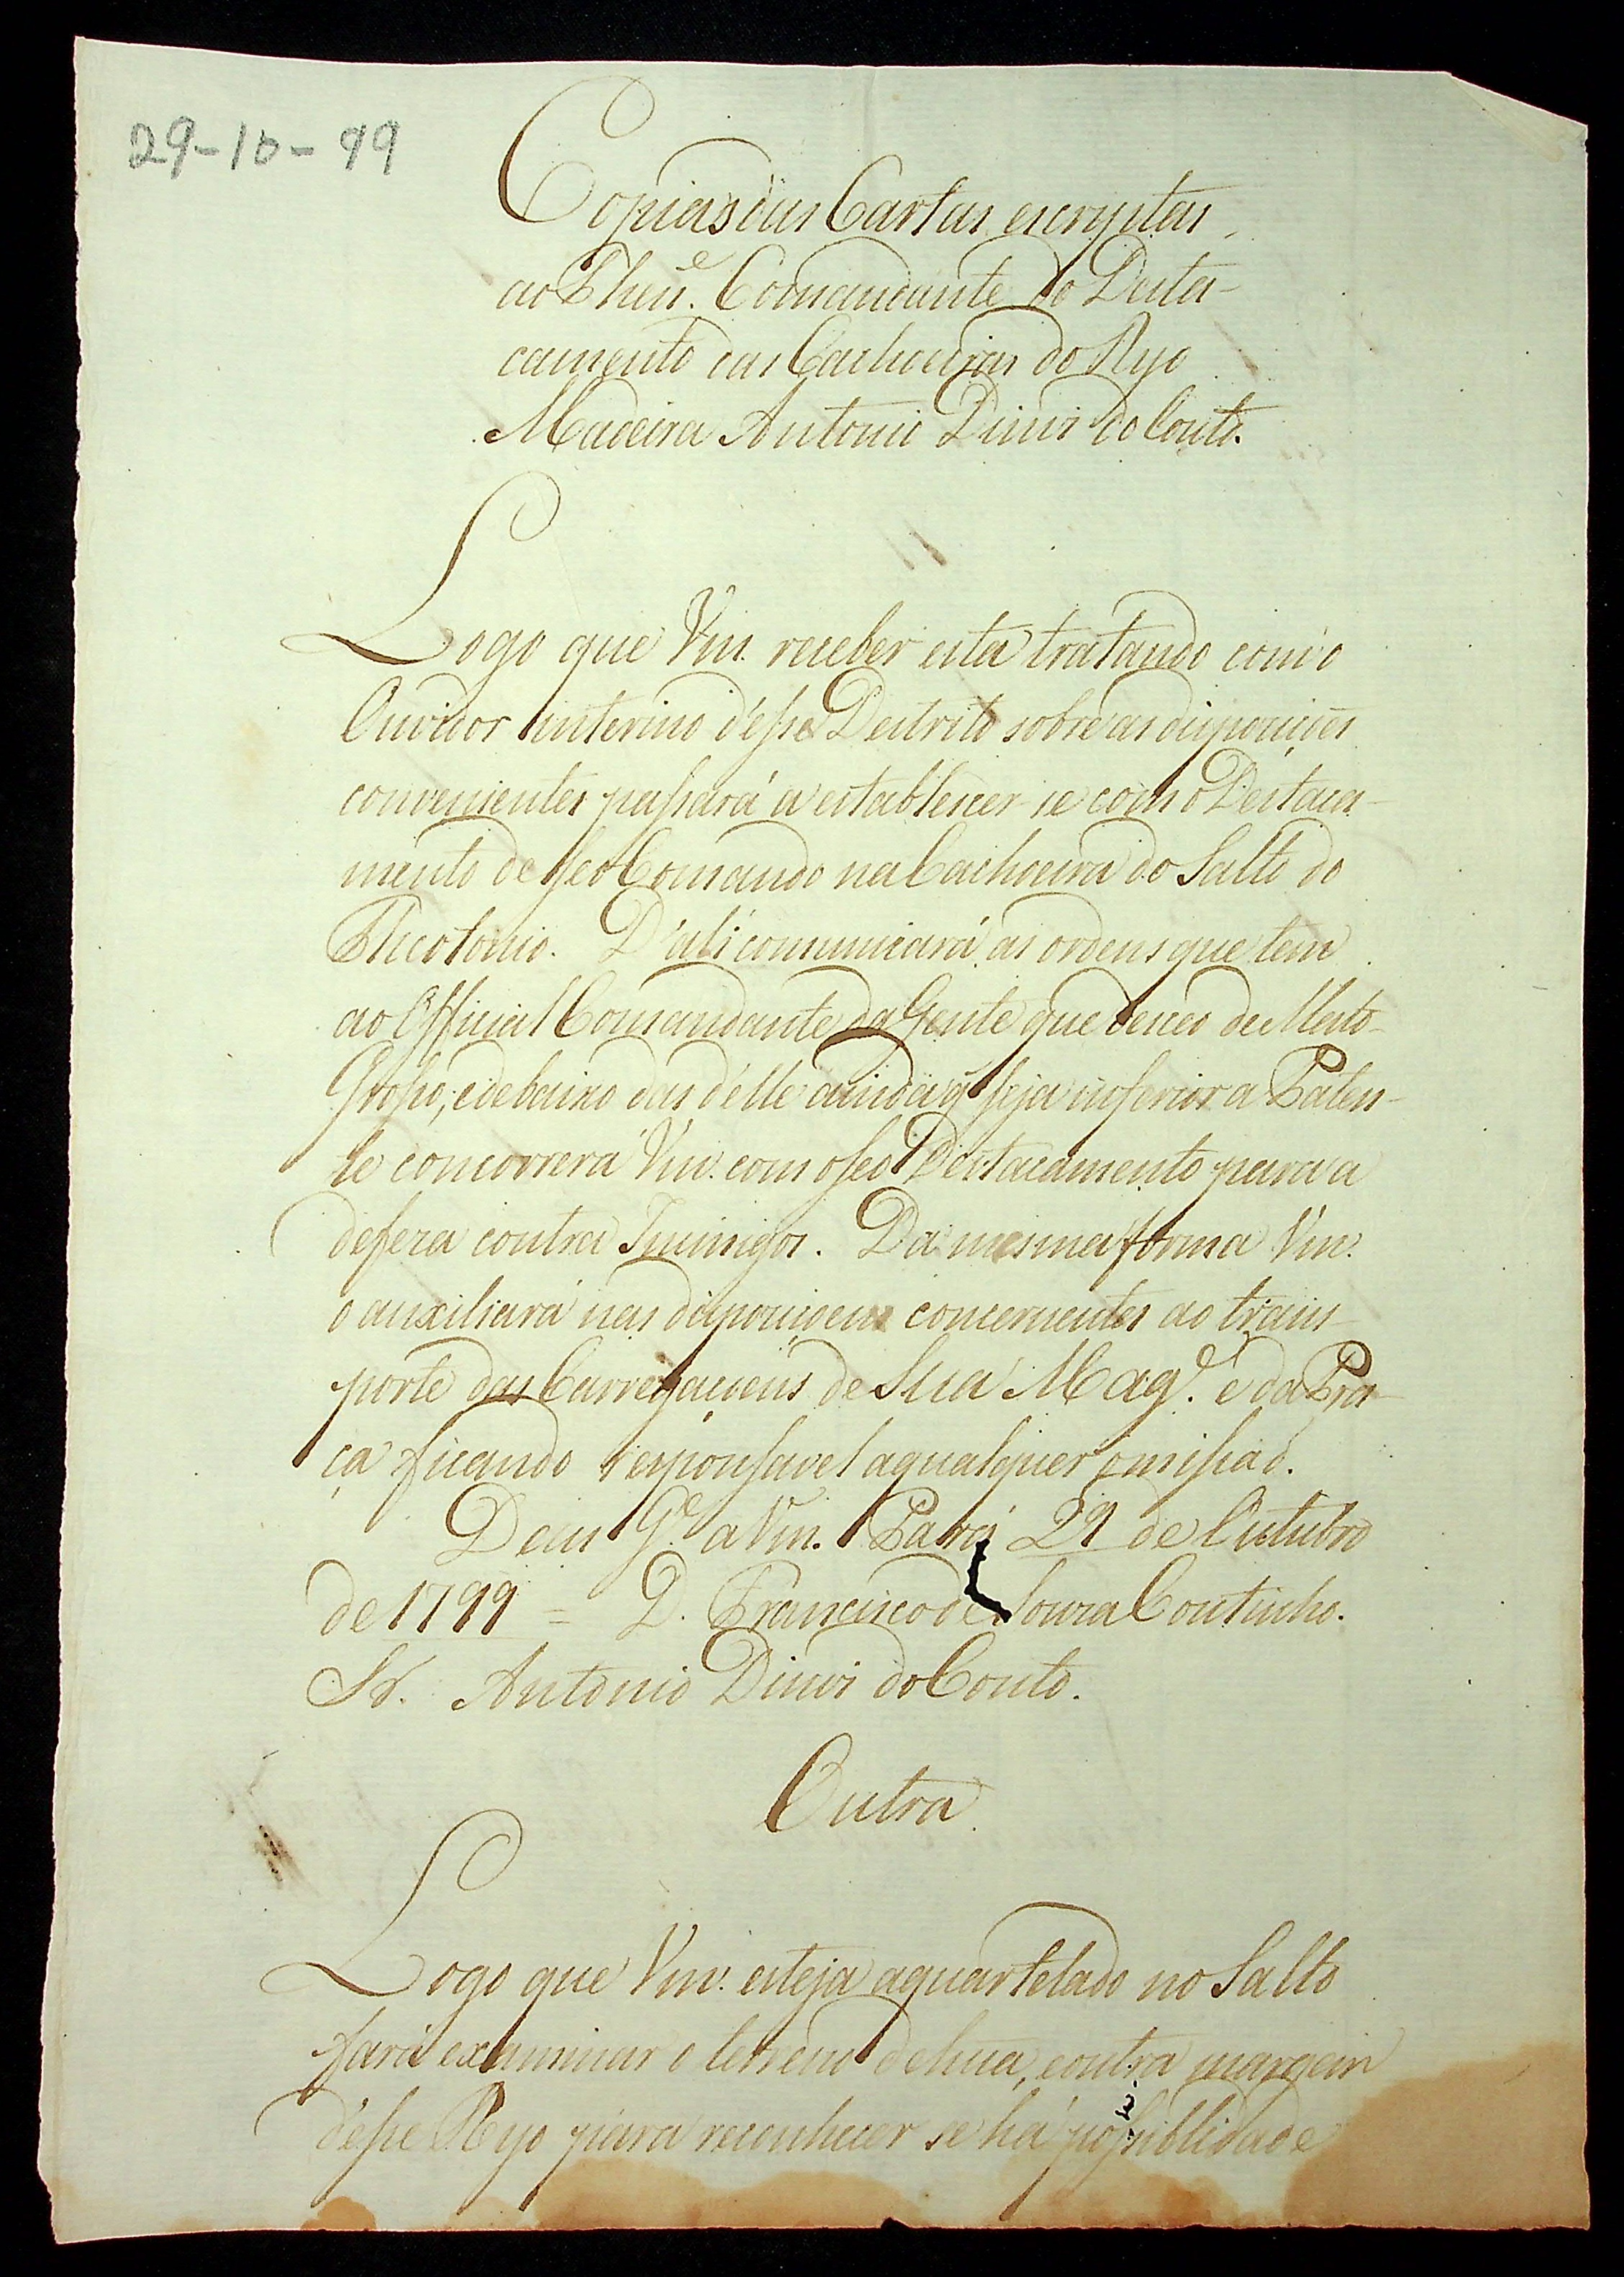 29-10-99
Copias das Cartas escryptas
ao Then.e Comandante do Desta-
camento das Cachoeiras do Ryo
Madeira Antonio Diniz do Couto.
Logo que Vm. receber esta tratando com o
Ouvidor interino d'esse Destrito sobre as dispoziçoẽs
convenientes passará a establescer-se com o Destaca-
mento de seo Comando na Cachoeira do Salto do
Theotonio. D'ali comunicará as ordens que tem
ao Official Comandante da Gente que desceo de Mato-
Grosso; e debaixo das d'elle ainda q̃ seja inferior a Paten-
te concorrerá Vm. com o seo Destacamento para a
defeza contra Inimigos. Da mesma forma Vm.
o auxiliará nas dispoziçoens concernentes ao trans-
porte das Carregaçoens de Sua Mag.e e da Pra-
ça ficando responsavel a qualquer omissaõ.
Deus G.e a Vm. Pará 29 de Outubro
de 1799 = D. Francisco de Souza Coutinho.
Sr. Antonio Diniz do Couto.
Outra
Logo que Vm. esteja aquartelado no Salto
fará examinar o terreno de hua, e outra margem
d'esse Ryo para reconhecer se há possiblidade